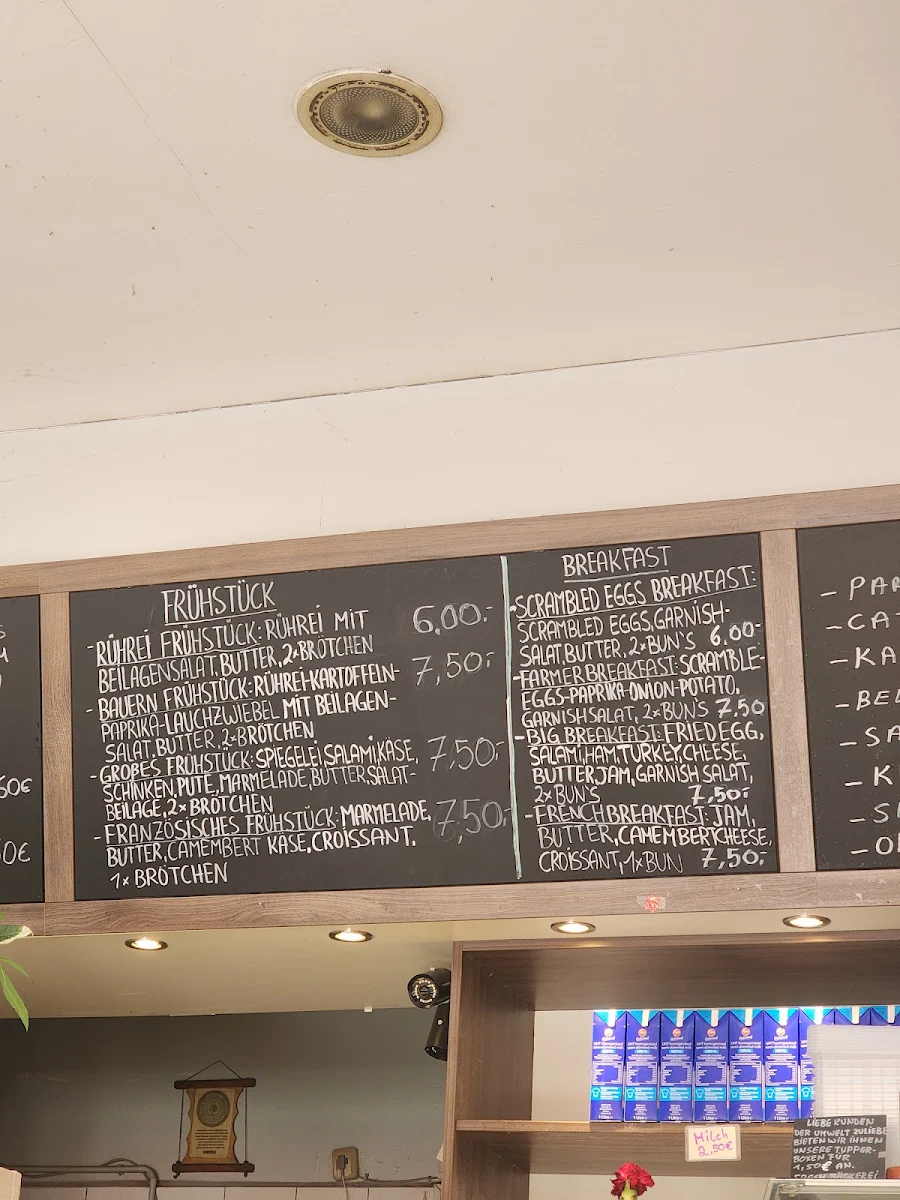 FRÜHSTÜCK
-RÜHREI FRÜHSTÜCK: RÜHREI MIT 6,00.-
BEILAGENSALAT, BUTTER, 2×BRÖTCHEN
-BAUERN FRÜHSTÜCK: RÜHREI-KARTOFFELN- 7,50.-
PAPRIKA-LAUCHZWIEBEL MIT BEILAGEN-
SALAT, BUTTER, 2×BRÖTCHEN
-GROßES FRÜHSTÜCK: SPIEGELEI, SALAMI, KÄSE, 7,50.-
SCHINKEN, PUTE, MARMELADE, BUTTER, SALAT-
BEILAGE, 2× BRÖTCHEN
-FRANZÖSISCHES FRÜHSTÜCK: MARMELADE, 7,50.-
BUTTER, CAMEMBERT KÄSE, CROISSANT.
1× BRÖTCHEN
BREAKFAST
-SCRAMBLED EGGS BREAKFAST:
SCRAMBLED EGGS, GARNISH-
SALAT, BUTTER, 2×BUN'S 6.00-
-FARMER BREAKFAST: SCRAMBLE-
EGGS-PAPRIKA-ONION-POTATO,
GARNISH SALAT, 2×BUN'S 7.50
-BIG BREAKFAST: FRIED EGG,
SALAMI, HAM, TURKEY, CHEESE,
BUTTER, JAM, GARNISH SALAT,
2×BUN'S 7,50.-
-FRENCH BREAKFAST: JAM,
BUTTER, CAMEMBERT CHEESE,
CROISSANT, 1×BUN 7,50.-
50€
50€
Milch
2,50€
LIEBE KUNDEN
DER UMWELT ZULIEBE
BIETEN WIR IHNEN
UNSERE TUPPER-
BOXEN FÜR
1,50€ AN.